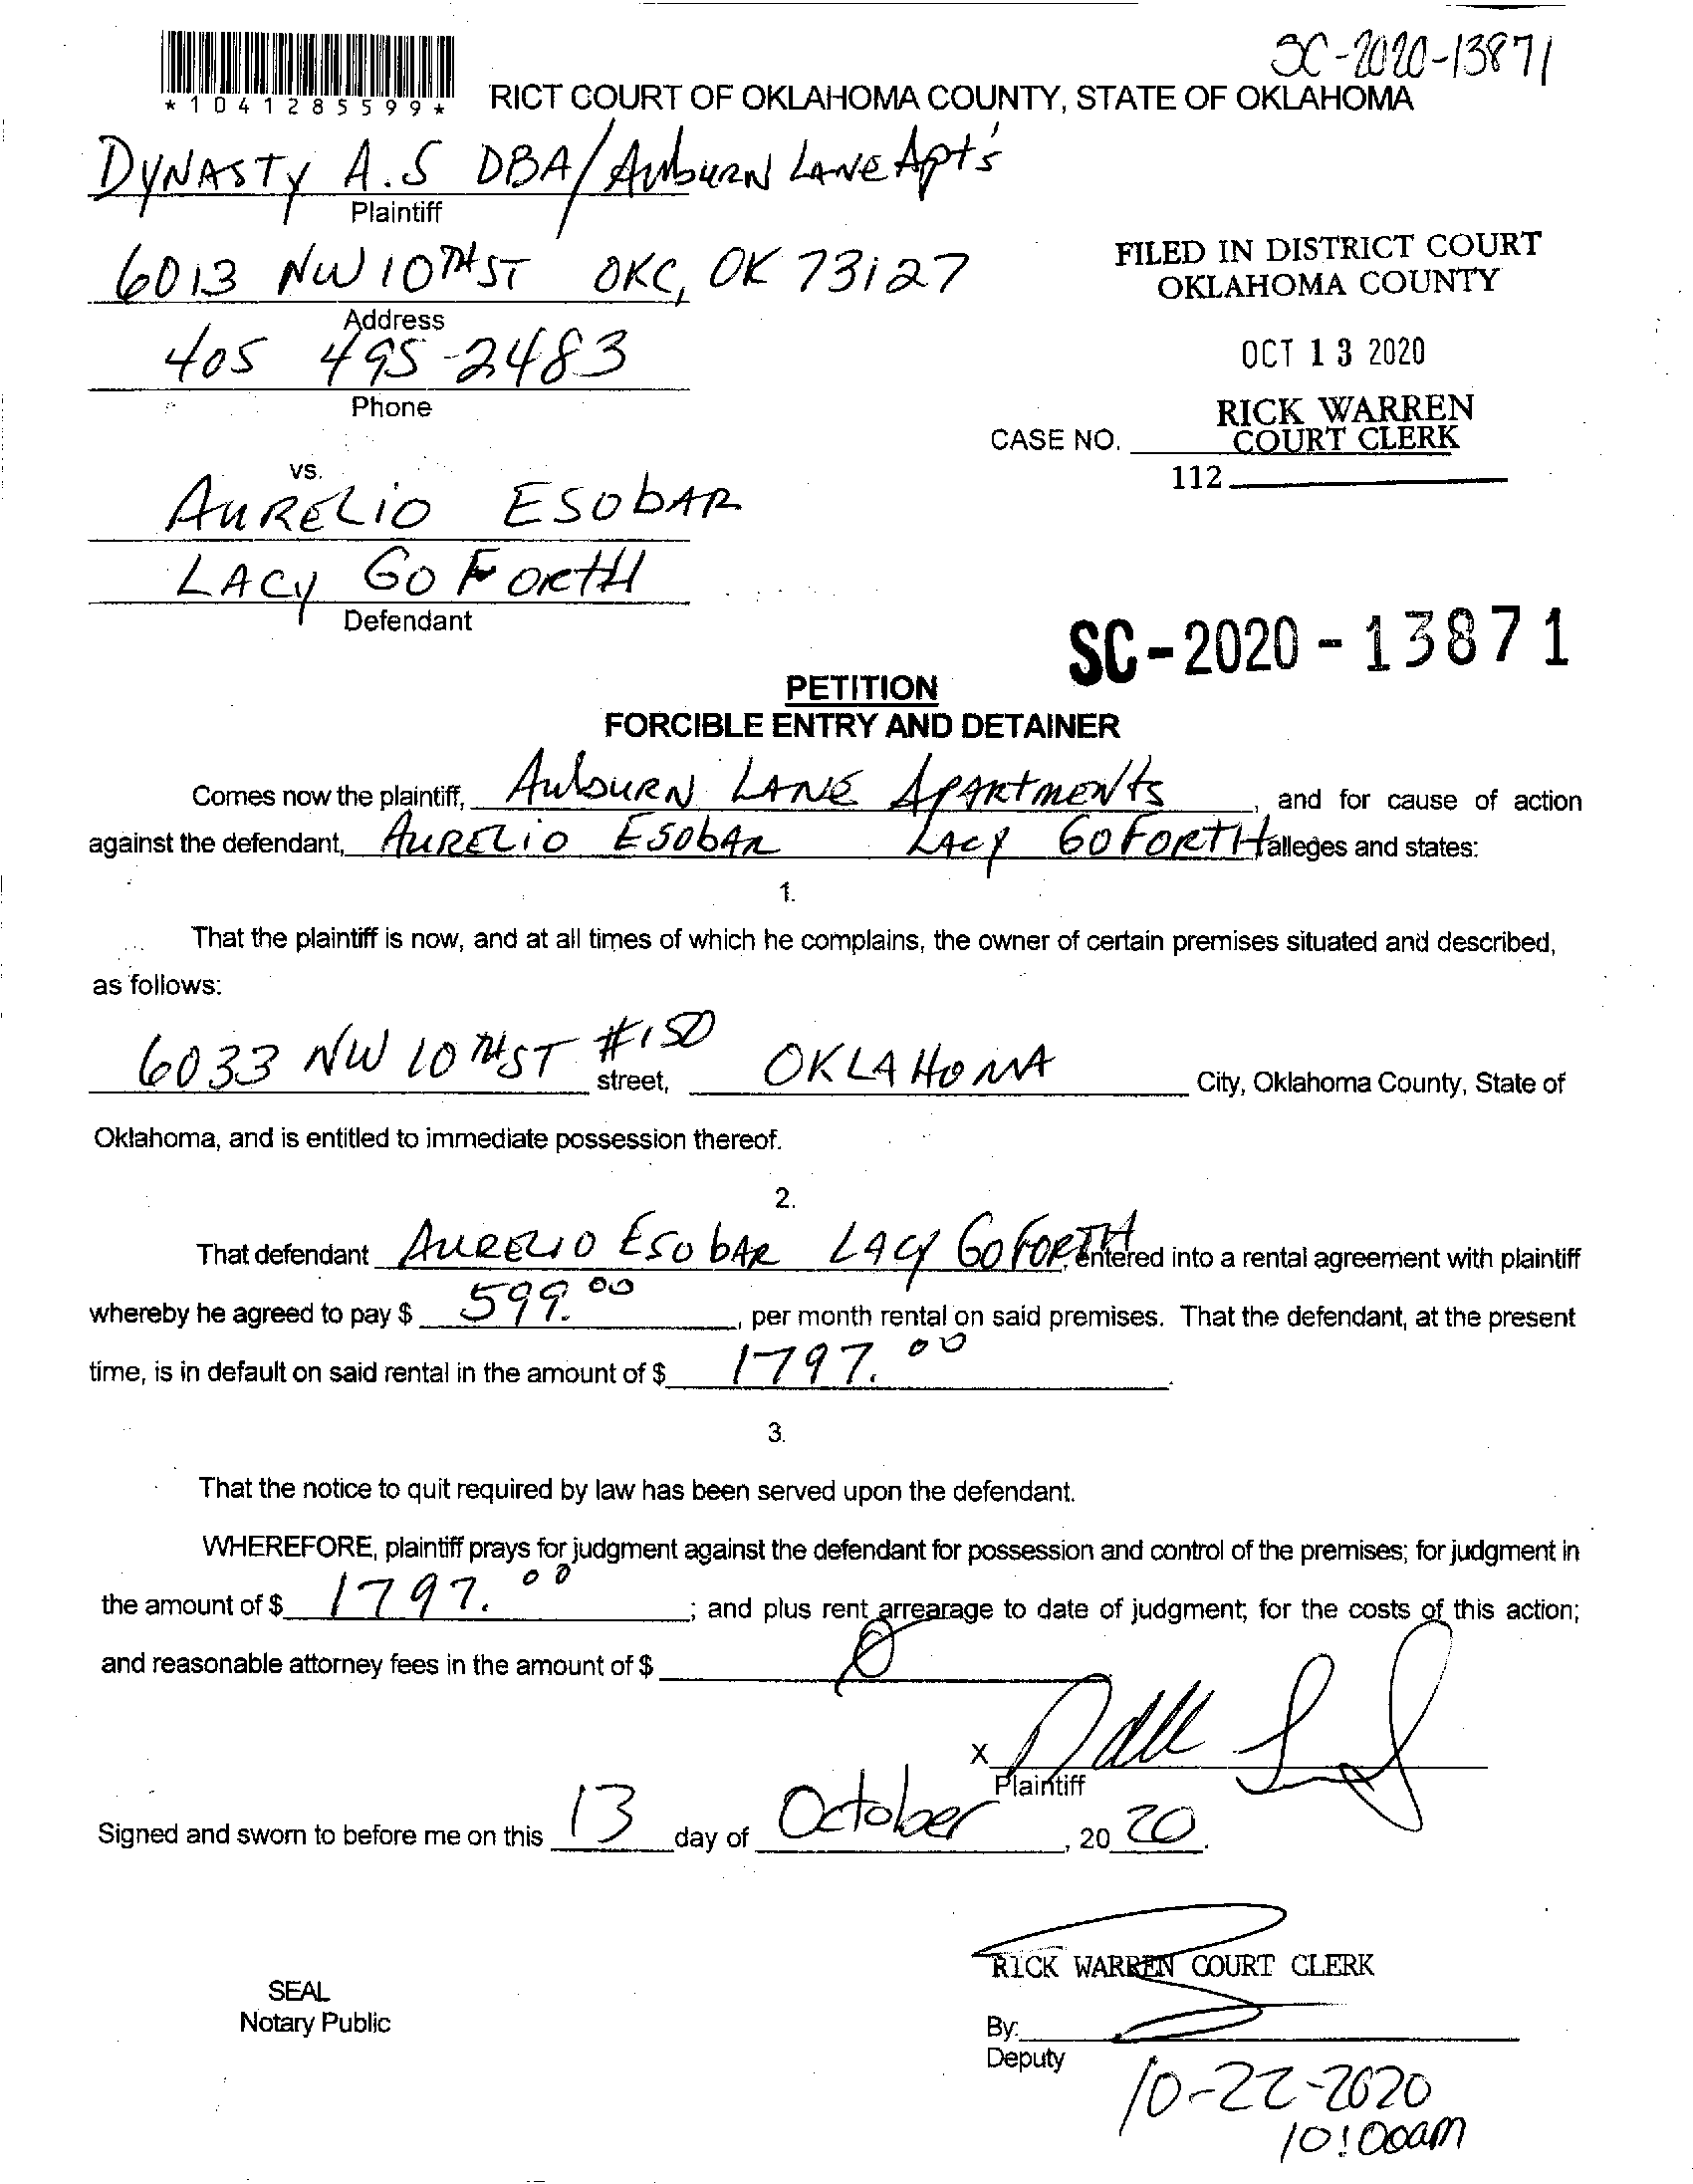 SC-2020-13871
*1041285599*
RICT COURT OF OKLAHOMA COUNTY, STATE OF OKLAHOMA
DYNASTY A.S DBA/AubURN LANE Apt's
Plaintiff
6013 NW 10TH ST OKC, OK 73127
Address
405 495-2483
Phone
FILED IN DISTRICT COURT
OKLAHOMA COUNTY
OCT 13 2020
RICK WARREN
CASE NO. COURT CLERK
112
vs.
AURELIO ESObAR
LACY GO FORTH
Defendant
SC-2020-13871
PETITION
FORCIBLE ENTRY AND DETAINER
Comes now the plaintiff, AubURN LANE APARtMENts, and for cause of action
against the defendant, AURELIO ESObAR LACY GOFORTH alleges and states:
1.
That the plaintiff is now, and at all times of which he complains, the owner of certain premises situated and described,
as follows:
6033 NW 10TH ST #150 street, OKLAHOMA City, Oklahoma County, State of
Oklahoma, and is entitled to immediate possession thereof.
2.
That defendant AURELIO ESObAR LACY GOFORTH, entered into a rental agreement with plaintiff
whereby he agreed to pay $ 599.00, per month rental on said premises. That the defendant, at the present
time, is in default on said rental in the amount of $ 1797.00.
3.
That the notice to quit required by law has been served upon the defendant.
WHEREFORE, plaintiff prays for judgment against the defendant for possession and control of the premises; for judgment in
the amount of $ 1797.00; and plus rent arrearage to date of judgment; for the costs of this action;
and reasonable attorney fees in the amount of $ 0
X
Plaintiff
Signed and sworn to before me on this 13 day of October, 2020.
RICK WARREN COURT CLERK
SEAL
Notary Public
By:
Deputy
10-22-2020
10:00am